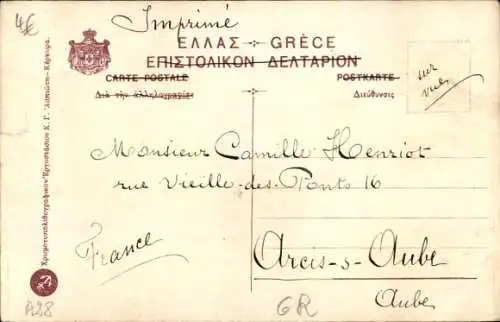 4€
Imprimé
ΕΛΛΑΣ ÷ GRÈCE
ΕΠΙΣΤΟΛΙΚΟΝ ΔΕΛΤΑΡΙΟΝ
CARTE POSTALE
POSTKARTE
Διὰ τὴν ἀλληλογραφίαν
Διεύθυνσις
sur
vue
Monsieur Camille Henriot
rue Vieille-des-Ponts 16
France
Arcis-s-Aube
Aube
A28
GR
Χρωματοτυπολιθογραφικὸν Ἐργοστάσιον Κ. Γ. Ἀσπιώτη–Κέρκυρα.